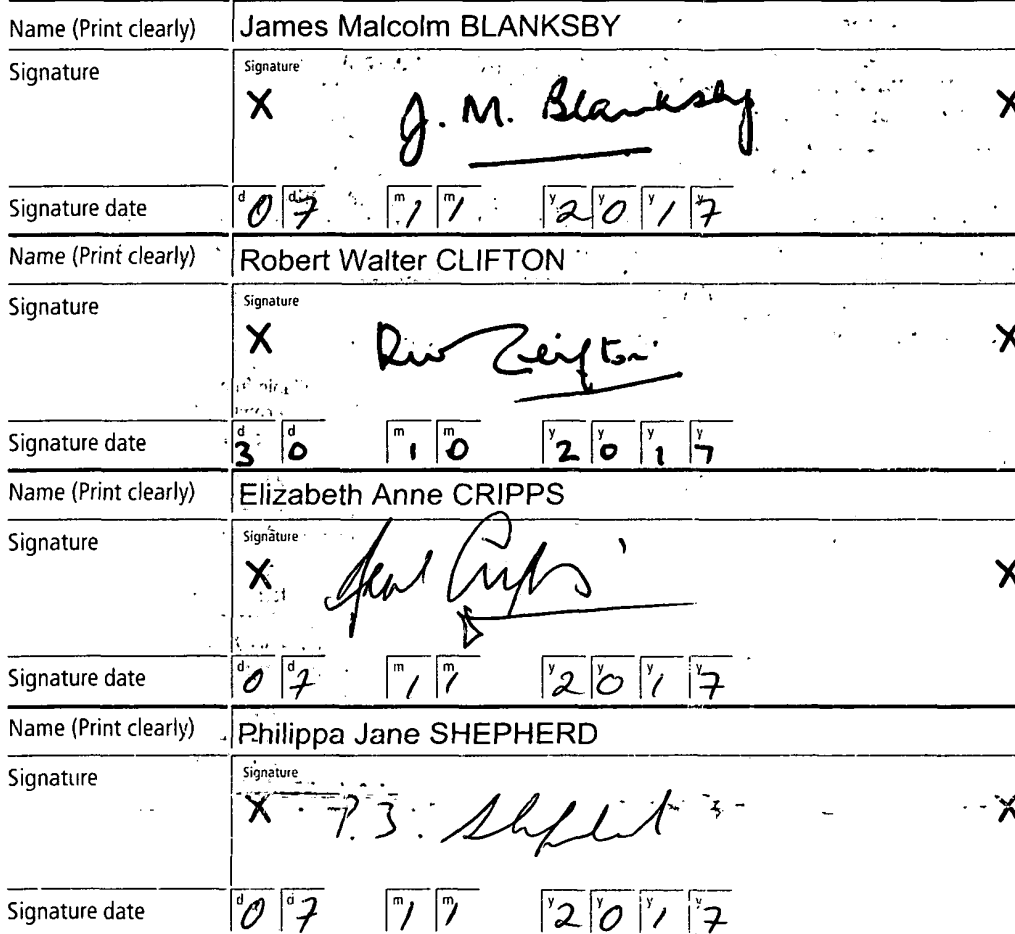 Name (Print clearly) James Malcolm BLANKSBY
Signature Signature
X J. M. Blanksby X
Signature date d 0 d 7 m 1 m 1 y 2 y 0 y 1 y 7
Name (Print clearly) Robert Walter CLIFTON
Signature Signature
X RW Clifton X
Signature date d 3 d 0 m 1 m 0 y 2 y 0 y 1 y 7
Name (Print clearly) Elizabeth Anne CRIPPS
Signature Signature
X Cripps X
Signature date d 0 d 7 m 1 m 1 y 2 y 0 y 1 y 7
Name (Print clearly) Philippa Jane SHEPHERD
Signature Signature
X P. J. Shepherd X
Signature date d 0 d 7 m 1 m 1 y 2 y 0 y 1 y 7